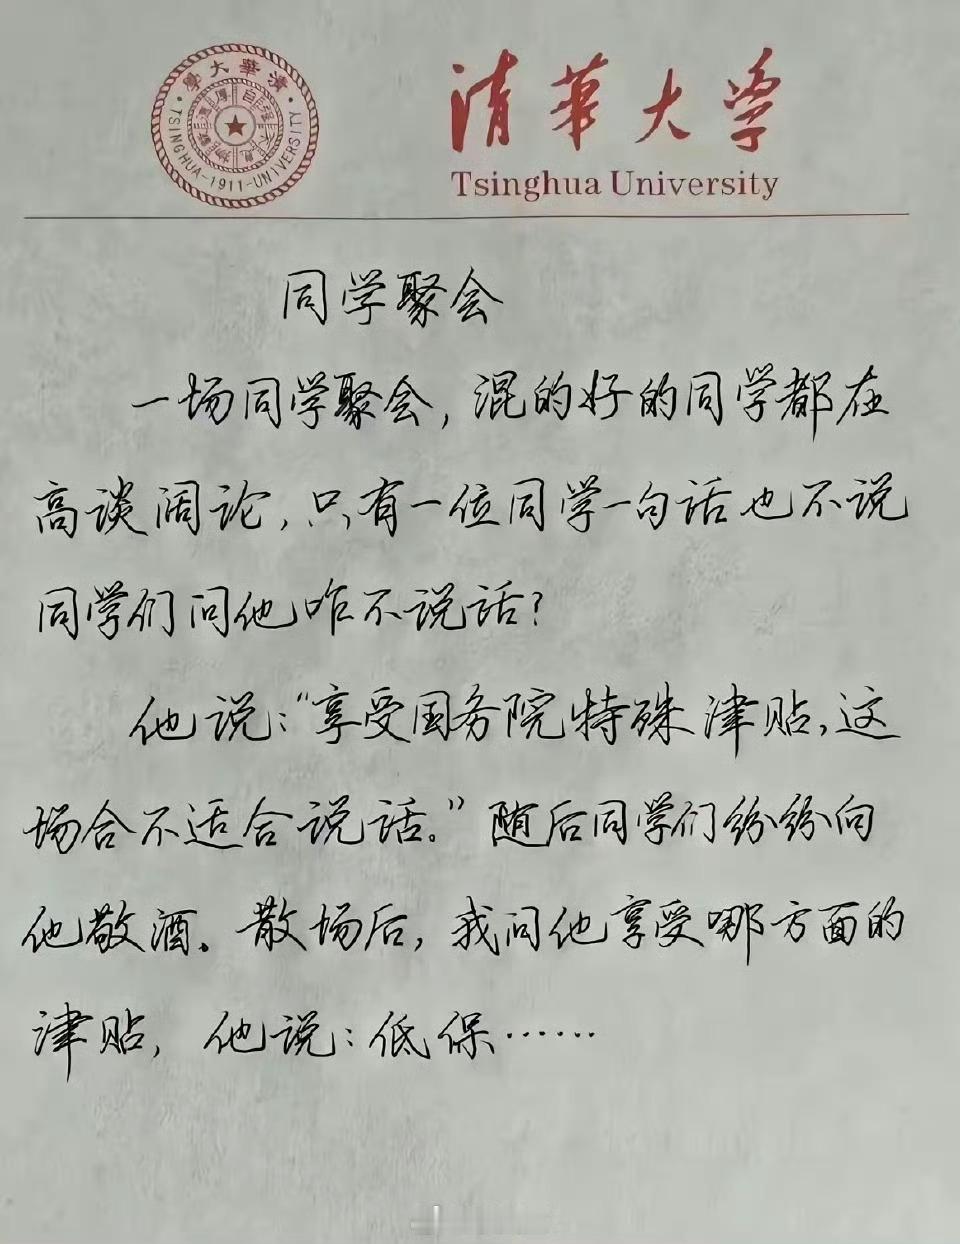 清華大学
Tsinghua University
清華大學
TSINGHUA-1911-UNIVERSITY
自强不息
厚德載物
同学聚会
一场同学聚会，混的好的同学都在
高谈阔论，只有一位同学一句话也不说
同学们问他咋不说话？
他说：“享受国务院特殊津贴，这
场合不适合说话。”随后同学们纷纷向
他敬酒。散场后，我问他享受哪方面的
津贴，他说：低保……